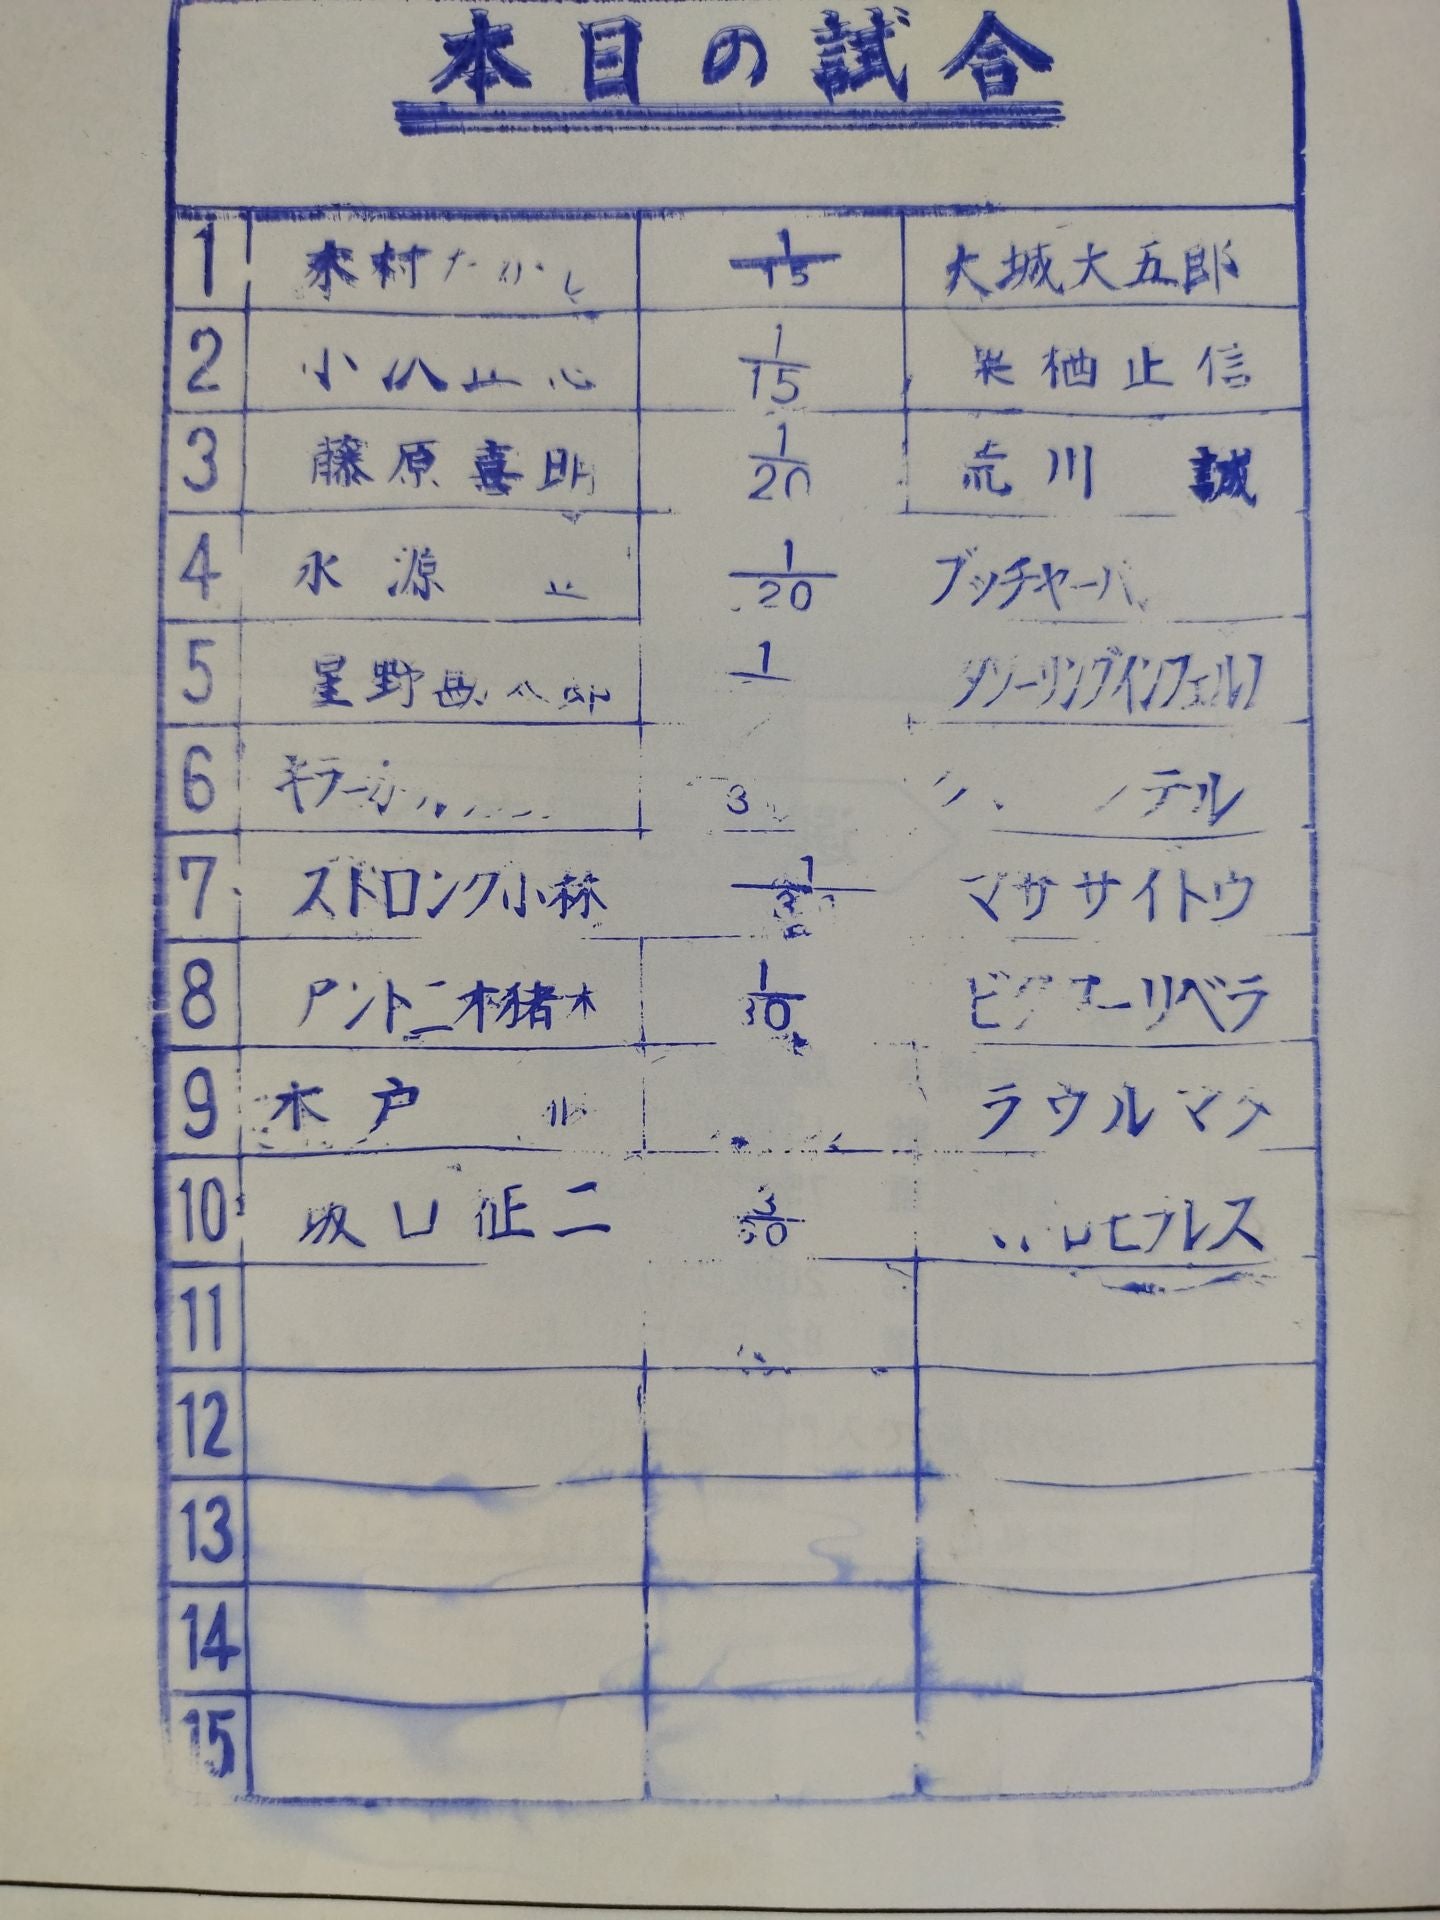 本日の試合
1 木村たかし 1/15 大城大五郎
2 小 1/15 栗栖正信
3 藤原喜明 1/20 荒川 誠
4 永源 1/20 ブッチャー
5 星野勘太郎 1 タワーリングインフェルノ
6 キラーカール 3 テル
7 ストロング小林 1 マササイトウ
8 アントニオ猪木 1/30 ビクターリベラ
9 木戸 ラウルマタ
10 坂口征二 3/60
11
12
13
14
15